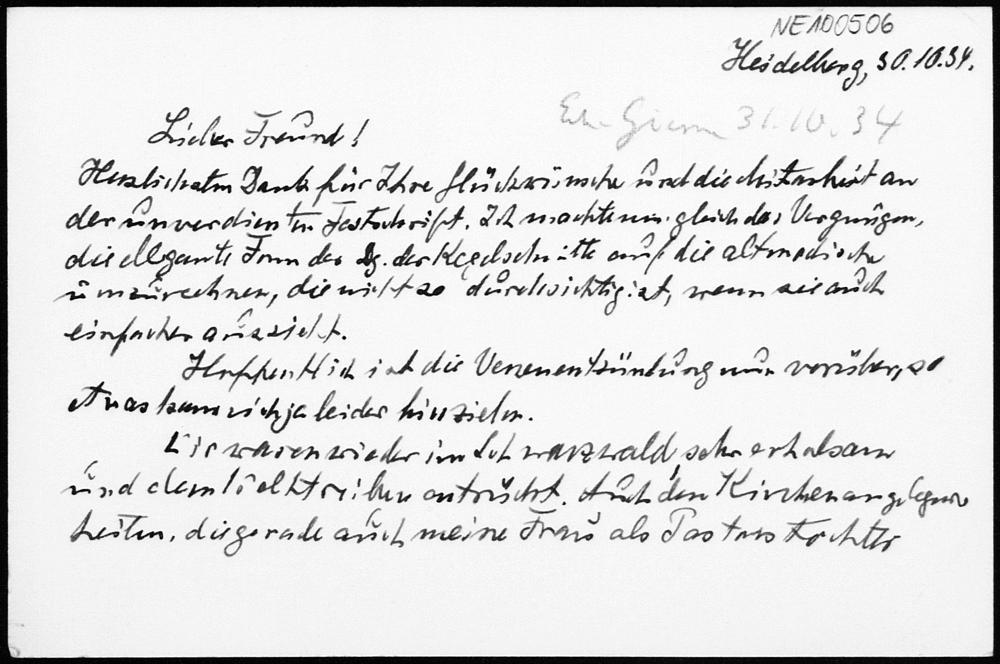 NE100506
Heidelberg, 30.10.34.
31.10.34
Lieber Freund!
Herzlichsten Dank für Ihre Glückwünsche und die Mitarbeit an
der unverdienten Festschrift. Ich machte mir gleich das Vergnügen,
die elegante Form der Lg. der Kegelschnitte auf die altmodische
umzurechnen, die nicht so durchsichtig ist, wenn sie auch
einfacher aussieht.
Hoffentlich ist die Venenentzündung nun vorüber, so
etwas kann sich ja leider hinziehen.
Wir waren wieder im Schwarzwald, sehr erholsam
und dem entrückt. Auch den Kirchenangelegen-
heiten, die gerade auch meine Frau als Pastorstochter